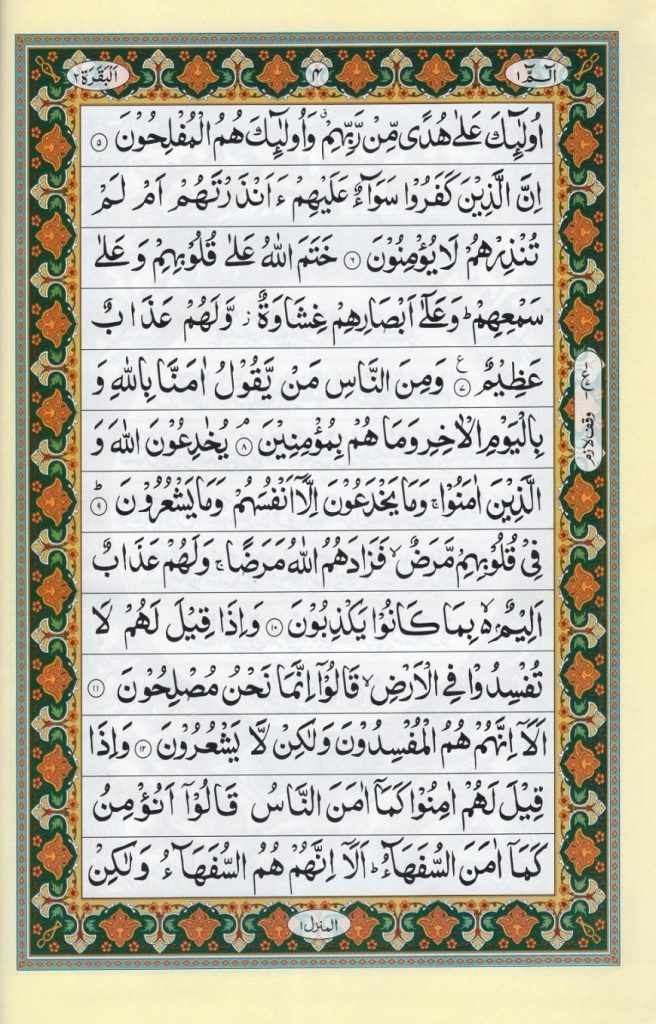 الٓمّٓ ۱
۴
اَلْبَقَرَة ۲
اُولٰٓئِكَ عَلٰى هُدًى مِّنْ رَّبِّهِمْ ۗ وَاُولٰٓئِكَ هُمُ الْمُفْلِحُوْنَ ۵
اِنَّ الَّذِيْنَ كَفَرُوْا سَوَآءٌ عَلَيْهِمْ ءَاَنْذَرْتَهُمْ اَمْ لَمْ
تُنْذِرْهُمْ لَا يُؤْمِنُوْنَ ۶ خَتَمَ اللّٰهُ عَلٰى قُلُوْبِهِمْ وَ عَلٰى
سَمْعِهِمْ ؕ وَعَلٰٓى اَبْصَارِهِمْ غِشَاوَةٌ ز وَّلَهُمْ عَذَابٌ
عَظِيْمٌ ۷ ع وَمِنَ النَّاسِ مَنْ يَّقُوْلُ اٰمَنَّا بِاللّٰهِ وَ
بِالْيَوْمِ الْاٰخِرِ وَمَا هُمْ بِمُؤْمِنِيْنَ ۘ ۸ يُخٰدِعُوْنَ اللّٰهَ وَ
الَّذِيْنَ اٰمَنُوْا ۚ وَمَا يَخْدَعُوْنَ اِلَّآ اَنْفُسَهُمْ وَمَا يَشْعُرُوْنَ ؕ ۹
فِيْ قُلُوْبِهِمْ مَّرَضٌ ۙ فَزَادَهُمُ اللّٰهُ مَرَضًا ۚ وَلَهُمْ عَذَابٌ
اَلِيْمٌۢ ۙ۬ بِمَا كَانُوْا يَكْذِبُوْنَ ۱۰ وَاِذَا قِيْلَ لَهُمْ لَا
تُفْسِدُوْا فِي الْاَرْضِ ۙ قَالُوْٓا اِنَّمَا نَحْنُ مُصْلِحُوْنَ ۱۱
اَلَآ اِنَّهُمْ هُمُ الْمُفْسِدُوْنَ وَلٰكِنْ لَّا يَشْعُرُوْنَ ۱۲ وَاِذَا
قِيْلَ لَهُمْ اٰمِنُوْا كَمَآ اٰمَنَ النَّاسُ قَالُوْٓا اَنُؤْمِنُ
كَمَآ اٰمَنَ السُّفَهَآءُ ؕ اَلَآ اِنَّهُمْ هُمُ السُّفَهَآءُ وَلٰكِنْ
وقف لازم
المنزل ۱